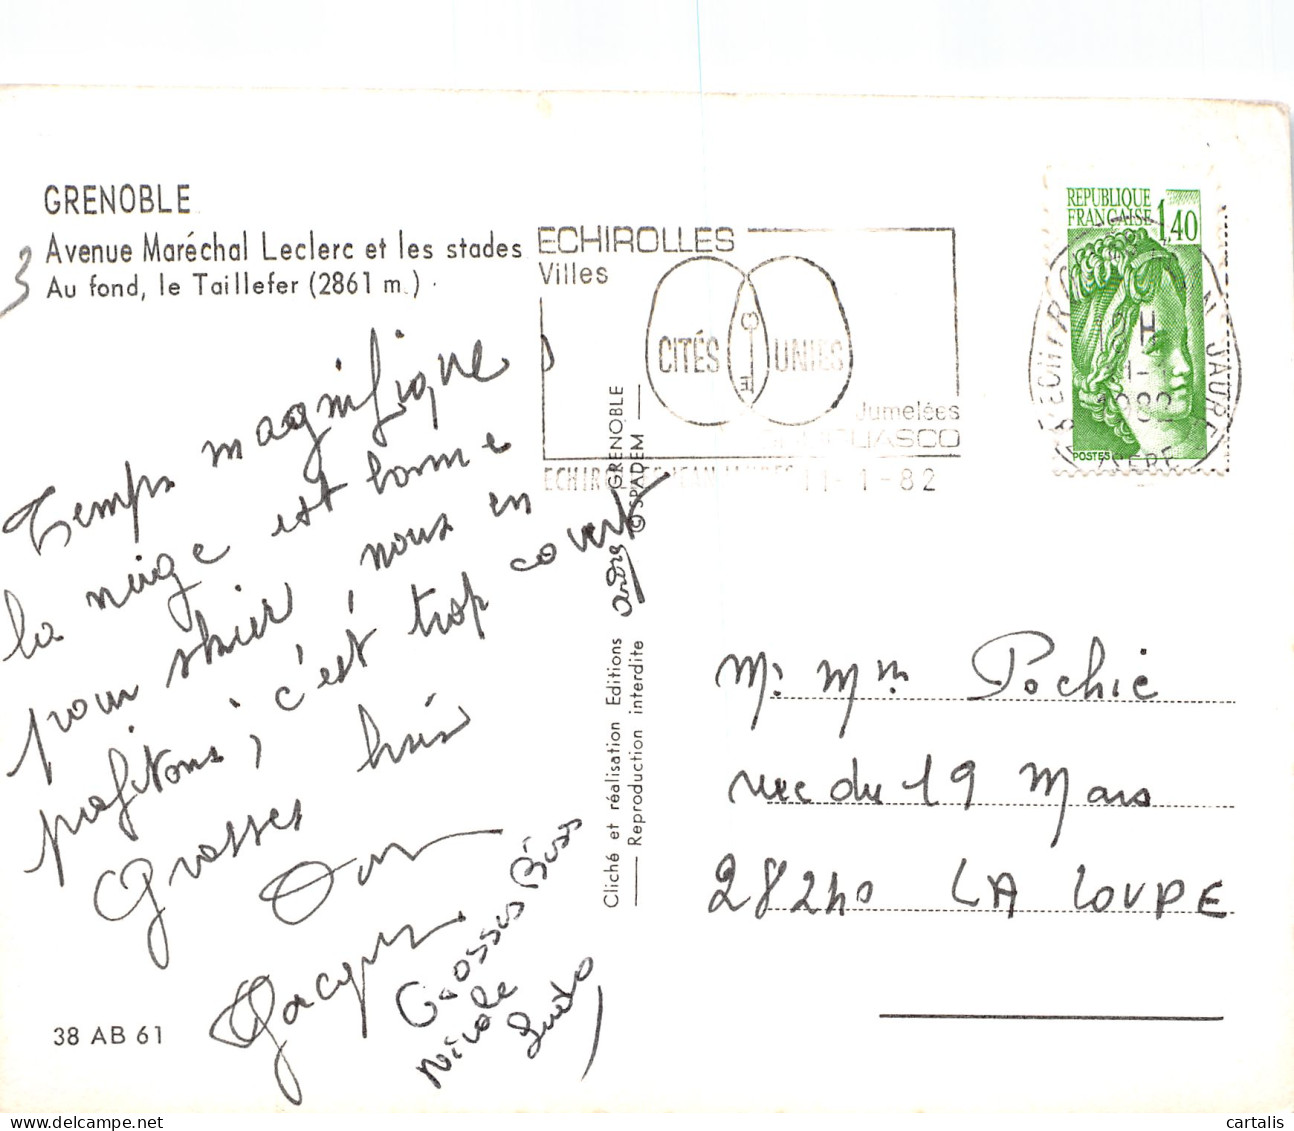 GRENOBLE
Avenue Maréchal Leclerc et les stades
Au fond, le Taillefer (2861 m.)
3
ECHIROLLES
Villes
CITÉS UNIES
Jumelées
11-1-82
REPUBLIQUE
FRANÇAISE 1,40
POSTES
1982
Temps magnifique
la neige est bonne
pour skier nous en
profitons, c'est trop court
Grosses bises
Jacques
Grosses Bises
Nicole
38 AB 61
Cliché et réalisation Editions andré GRENOBLE
Reproduction interdite © SPADEM
Mr Mme Pochic
rue du 19 Mars
28240 LA LOUPE
cartalis